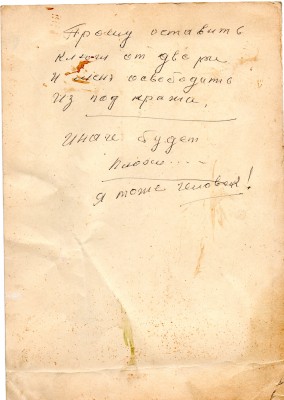 Прошу оставить
ключи от двери
и меня освободить
из под кражи.
Иначе будет
плохо....
я тоже человек!